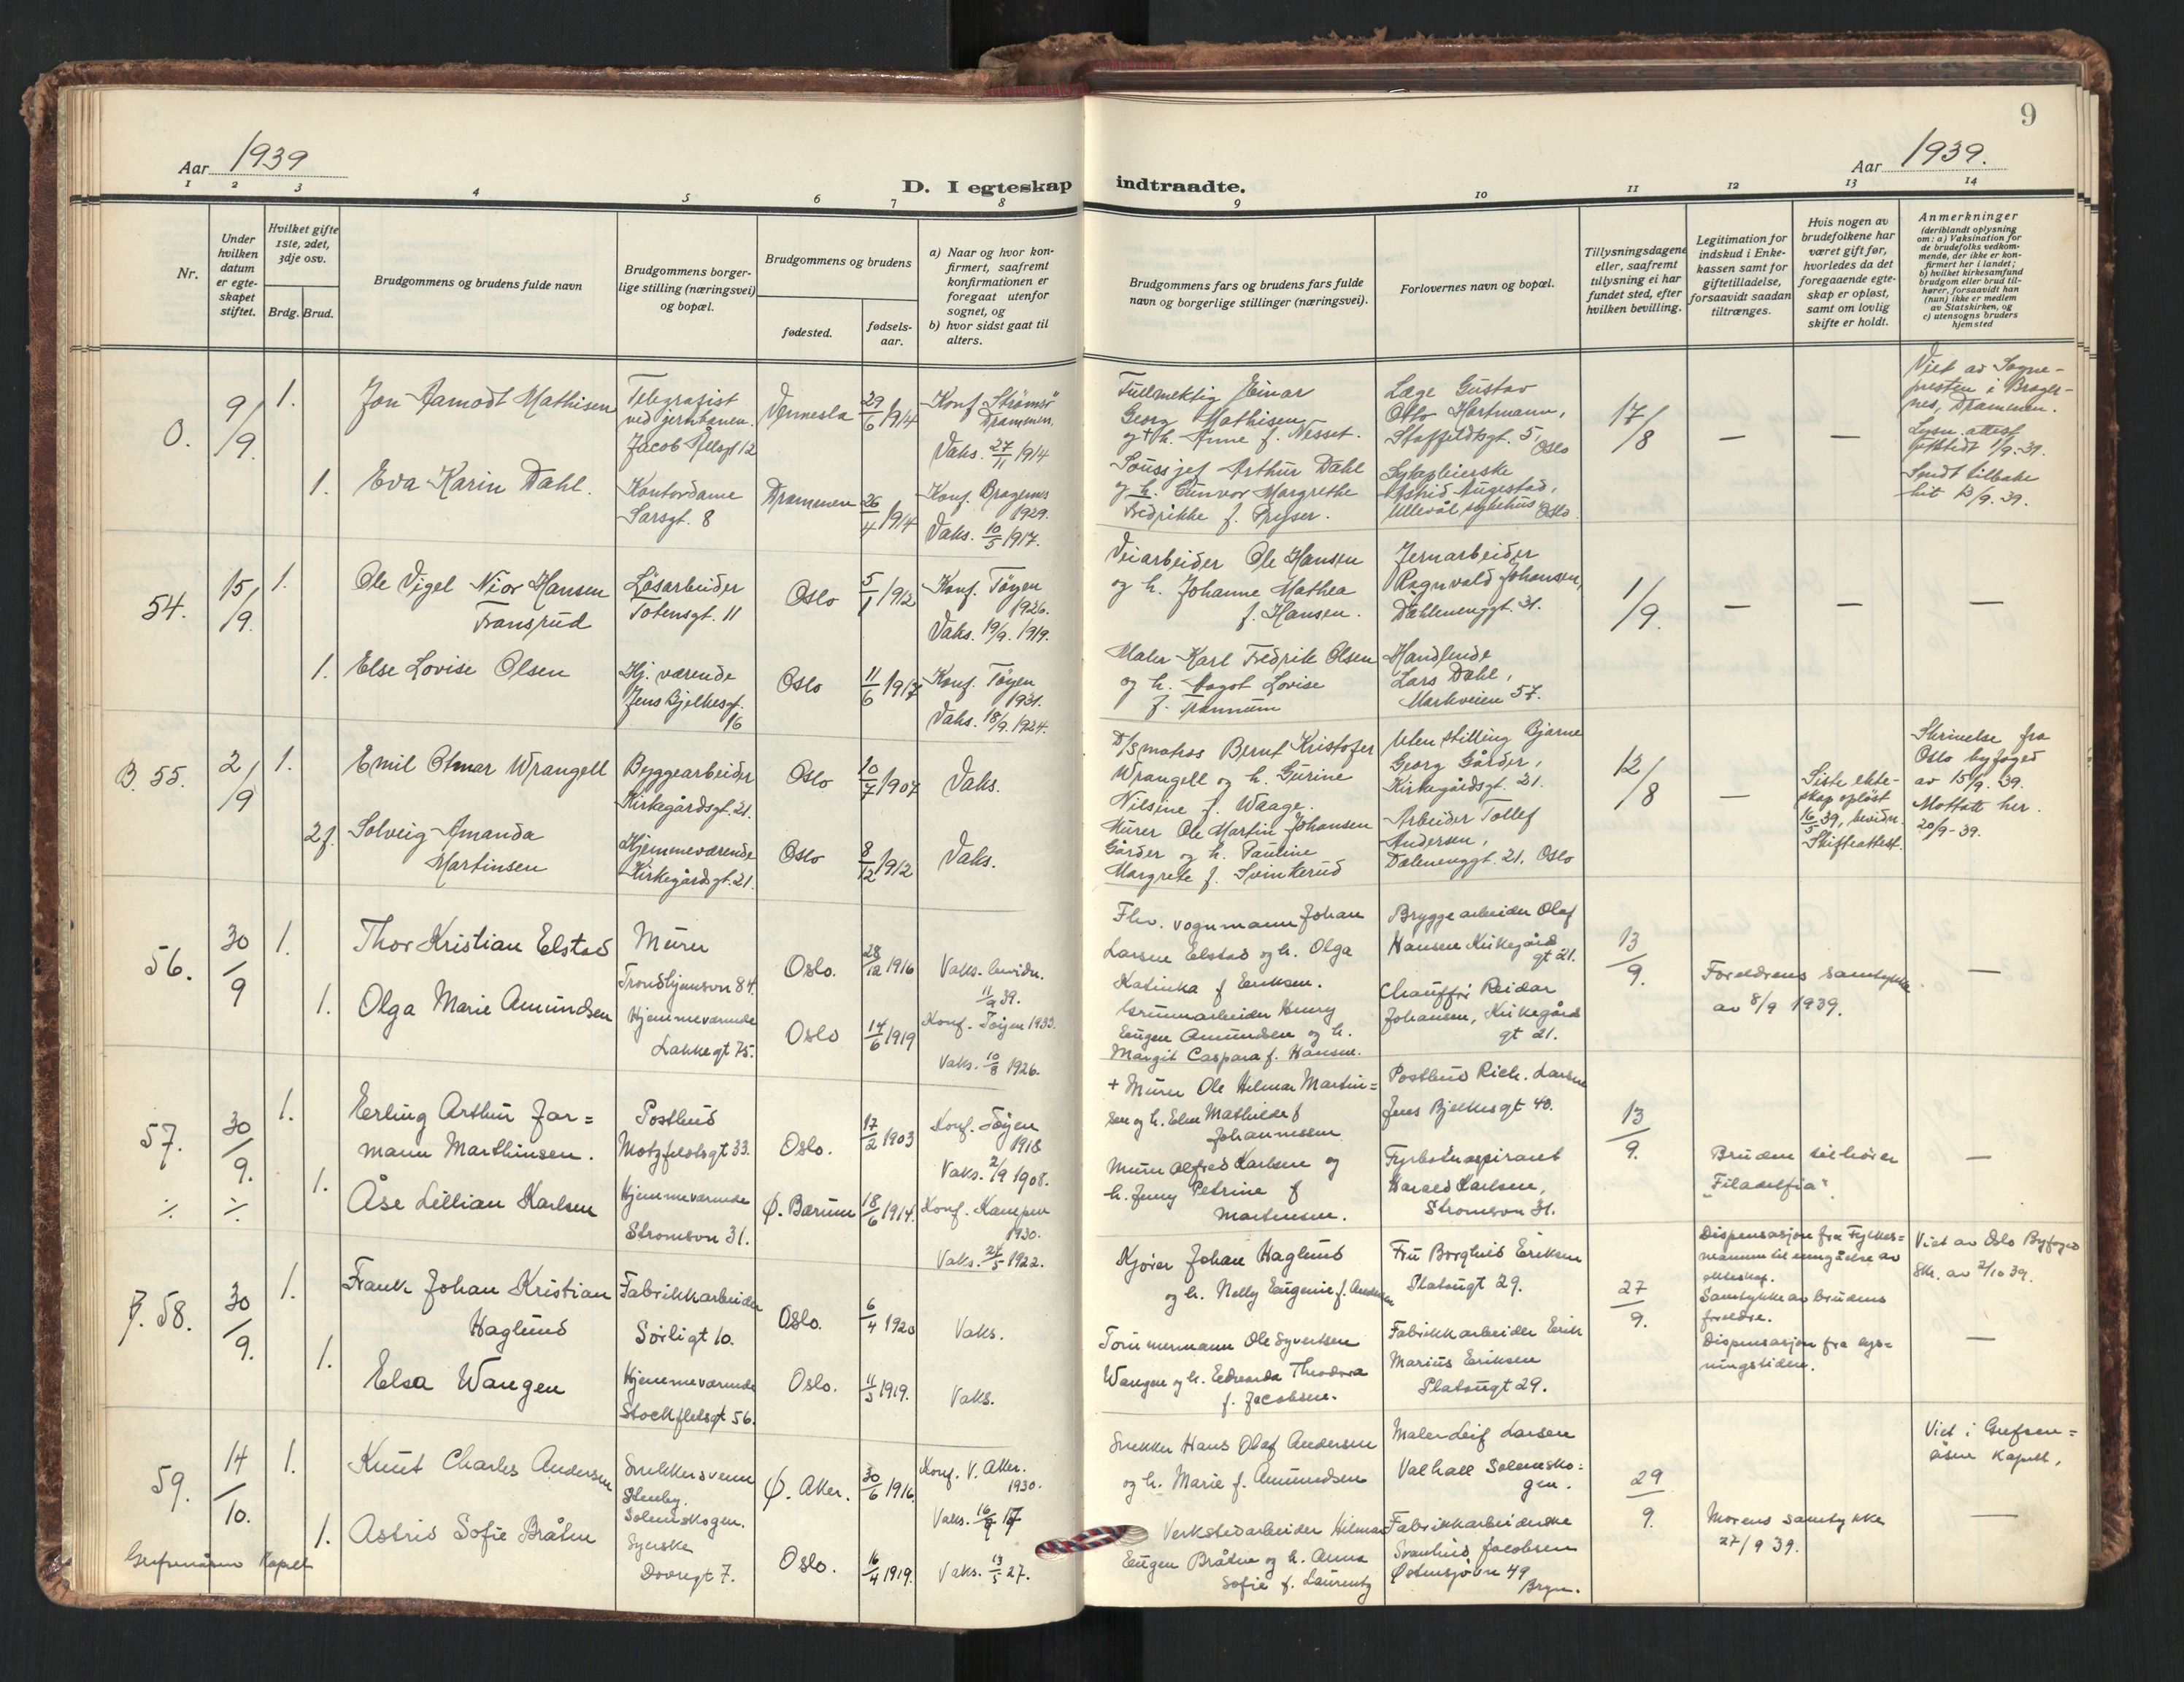 Aar 1939
D. I egteskap
1 2 3 4 5 6 7 8
Nr.
Under hvilken datum er egte-skapet stiftet.
Hvilket gifte 1ste, 2det, 3dje osv.
Brdg. Brud.
Brudgommens og brudens fulde navn
Brudgommens borger-
lige stilling (næringsvei)
og bopæl.
Brudgommens og brudens
fødested.
fødsels-
aar.
a) Naar og hvor kon-
firmert, saafremt
konfirmationen er
foregaat utenfor
sognet, og
b) hvor sidst gaat til
alters.
0.
9/9.
1.
Jon Aamodt Mathisen
Telegrafist
ved jernbanen.
Jacob Ållsgt 12
Vennesla
29/6 1914
Konf. Strömsö
Drammen.
Vaks. 27/11 1914
1.
Eva Karin Dahl.
Kontordame
Sarsgt. 8
Drammen
26/4 1914
Konf. Bragernes
1929.
Vaks. 10/5 1917.
54.
15/9.
1.
Ole Vigel Nior Hansen
Fransrud
Løsarbeider
Totensgt. 11
Oslo
5/1 1912
Konf. Töyen
1926.
Vaks. 19/9. 1919.
1.
Else Lovise Olsen
Hj. værende
Jens Bjelkesgt.
16
Oslo
11/6 1917
Konf. Töyen
1931.
Vaks. 18/9. 1924.
B. 55.
2/9
1.
Emil Otmar Wrangell
Byggearbeider
Kirkegårdsgt. 21.
Oslo
10/7 1907
Vaks.
2f.
Solveig Amanda
Martinsen
Hjemmeværende
Kirkegårdsgt. 21.
Oslo
8/12 1912
Vaks.
56.
30/9
1.
Thor Kristian Elstad
Murer
Trondhjemsvn 84.
Oslo.
28/12 1916
Vaks. bevidn.
11/9 39.
1.
Olga Marie Amundsen
Hjemmeværende
Lakkegt 75.
Oslo
14/6 1919
Konf. Töyen 1933.
Vaks. 10/8 1926.
57.
30/9.
1.
Erling Arthur Jar=
mann Marthinsen.
Postbud
Motzfeldtsgt 33.
Oslo.
17/2 1903
Konf. Töyen
1918
Vaks. 2/9 1908.
1.
Åse Lillian Karlsen
Hjemmeværende
Stromsvn 31.
Ø. Bærum
18/6 1914.
Konf. Kampen
1930.
Vaks. 24/5 1922.
58.
30/9.
1.
Frank Johan Kristian
Haglund
Fabrikkarbeider
Sørligt 10.
Oslo.
6/4 1920
Vaks.
1.
Elsa Wangen
Hjemmeværende
Stockfletsgt 56.
Oslo.
11/5 1919.
Vaks.
59.
14/10.
1.
Knut Charles Andersen
Snekkersvenn
Stenby.
Solemskogen.
Ø. Aker.
30/6 1916
Konf. V. Aker.
1930.
Vaks. 16/9 17
1.
Astrid Sofie Bråten
Syerske
Dovregt 7.
Oslo.
16/4 1919.
Vaks. 13/5 27.
Grefsenåsen Kapell
9
Aar 1939.
indtraadte.
9 10 11 12 13 14
Brudgommens fars og brudens fars fulde
navn og borgerlige stillinger (næringsvei).
Forlovernes navn og bopæl.
Tillysningsdagene
eller, saafremt
tillysning ei har
fundet sted, efter
hvilken bevilling.
Legitimation for
indskud i Enke-
kassen samt for
giftetilladelse,
forsaavidt saadan
tiltrænges.
Hvis nogen av
brudefolkene har
været gift før,
hvorledes da det
foregaaende egte-
skap er opløst,
samt om lovlig
skifte er holdt.
Anmerkninger
(deriblandt oplysning
om: a) Vaksination for
de brudefolks vedkom-
mende, der ikke er kon-
firmert her i landet;
b) hvilket kirkesamfund
brudgom eller brud til-
hører, forsaavidt han
(hun) ikke er medlem
av Statskirken, og
c) utensogns bruders
hjemsted
Fullmektig Einar
Georg Mathisen
og + h. Anne f. Nesset.
Læge Gustav
Otto Hartmann,
Staffeldtsgt. 5,
Oslo
17/8
—
—
Viet av Sogne-
presten i Brager-
nes, Drammen.
Lysn. attest
utstedt 1/9-39.
Sendt tilbake
hit 13/9. 39.
Soussjef Arthur Dahl
og h. Gunvor Margrethe
Fredrikke f. Pryser.
Sykepleierske
Astrid Augestad,
Ullevål sykehus Oslo.
Veiarbeider Ole Hansen
og h. Johanne Mathea
f. Hansen.
Jernarbeider
Ragnvald Johansen,
Dælenenggt. 31.
1/9.
—
—
—
Maler Karl Fredrik Olsen
og h. Dagot Lovise
f. Trannum
Handlende
Lars Dahl,
Markveien 57.
D/S matros Bernt Kristofer
Wrangell og h. Gurine
Nilsine f. Waage.
Uten stilling Bjarne
Georg Gårder,
Kirkegårdsgt. 21.
12/8
—
Siste ekte-
skap opløst
16/5 39, bevidn.
Skifteattest.
Skrivelse fra
Oslo byfoged
av 15/9. 39.
Mottatt her.
20/9-39.
Murer Ole Martin Johansen
Gårder og h. Pauline
Margrete f. Svinkerud
Arbeider Tollef
Andersen,
Dælenenggt. 21. Oslo
Fhv. vognmann Johan
Larsen Elstad og h. Olga
Katinka f Eriksen.
Bryggearbeider Olaf
Hansen Kirkegård
gt 21.
13/9.
Foreldrenes samtykke
av 8/9 1939.
—
Grunnarbeider Henry
Eugen Amundsen og h.
Margit Caspara f. Hansen.
Chauffør Reidar
Johansen, Kirkegård
gt 21.
+ Murer Ole Hilmar Martin=
sen og h. Elen Mathilde f
Johannessen
Postbud Rich. Larsen
Jens Bjelkesgt 40.
13/9.
Bruden tilhører
"Filadelfia".
—
Murer Alfred Karlsen og
h. Jenny Petrine f
Martinsen.
Fyrbøteraspirant
Harald Karlsen,
Stromsvn 31.
Kjører Johan Haglund
og h. Nelly Eugenie f. Andersen
Fru Borghild Eriksen
Platougt 29.
27/9.
Dispensasjon fra Fylkes=
mannen til inngåelse av
ekteskap.
Samtykke av brudens
foreldre.
Dispensasjon fra lys=
ningstiden.
Viet av Oslo Byfoged
Skr. av 2/10 39.
—
Tømmermann Ole Syvertsen
Wangen og h. Edvarda Theodora
f. Jacobsen.
Fabrikkarbeider Erik
Marius Eriksen
Platougt 29.
Snekker Hans Olaf Andersen
og h. Marie f. Amundsen
Maler Leif Larsen
Valhall Solemsko=
gen.
29/9.
Morens samtykke
27/9 39.
Viet i Grefsen=
åsen Kapell,
—
Verkstedarbeider Hilmar
Eugen Bråten og h. Anna
Sofie f. Laurentz
Fabrikkarbeiderske
Svanhild Jacobsen
Østensjøvn 49
Bryn.